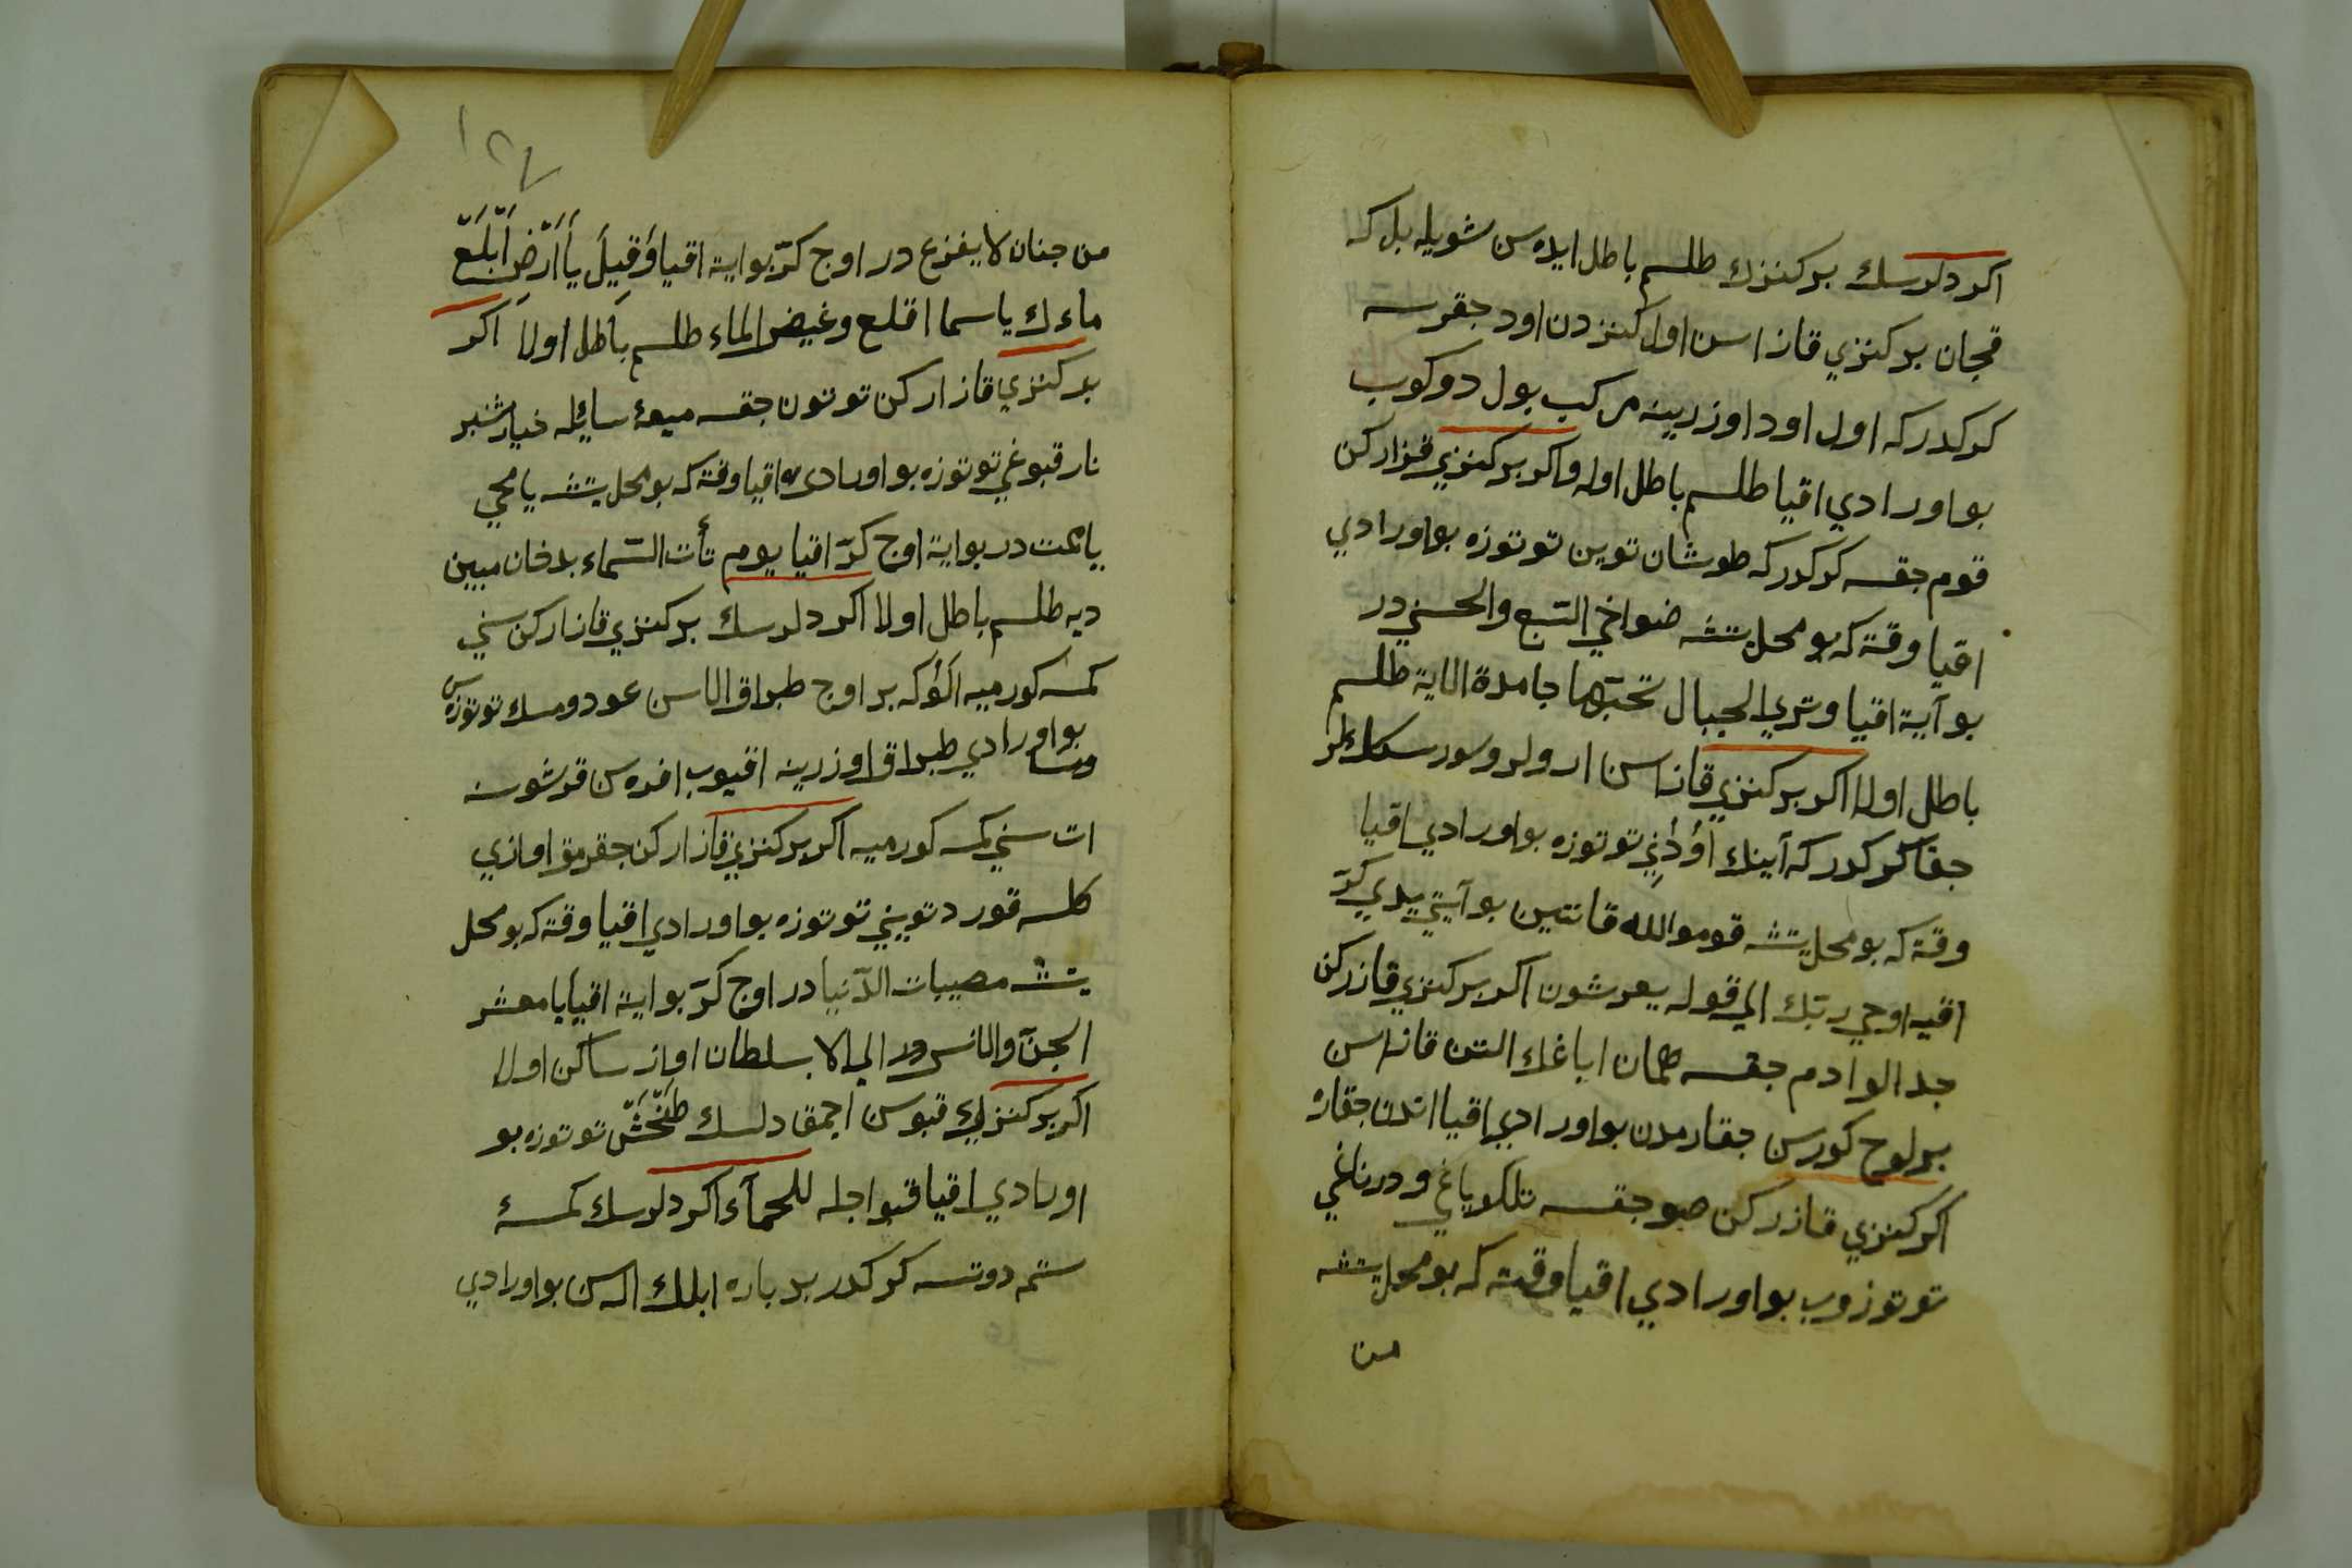 اكر دلرسك بر كنزك طلسم باطل ايده سن شويله بل كه
قچان بر كنزي قازاسن اول كنزدن اود جقرسه
كركدركه اول اود اوزرينه مركب بول دوكوب
بو اورادي اقيا طلسم باطل اوله واكر بر كنزي قزاركن
قوم جقسه كركدركه طوشان توين توتوزه بو اورادي
اقيا وقته كه بو محل يتشه ضواخي التبع والحسني در
بو آية اقيا وتري الجبال تحبتها جامدة الاية طلسم
باطل اولا اكر بر كنزي قازاسن ارولر وسور سكلر
جقا كركدركه آينك اودني توتوزه بو اورادي اقيا
وقته كه بو محل يتشه قوموالله قانتين بو آيتي يدي كرّ
اقيه اوحي ربّك الي قوله يعرشون اكر بر كنزي قازركن
جد الوادم جقسه همان اياغك التن قازاسن
بر لوح كورسن جقارمدن بو اورادي اقيا اندن جقاره
اكر كنزي قازركن صو جقسه تلكو ياغي و درناغي
توتوزوب بو اورادي اقيا وقته كه بو محل يتشه
من
١٢٧
من جنان لا يفزع در اوج كرّ بو اية اقيا وَقيلَ يَا اَرْضُ اَبْلَعِ
ماءك ياسما اقلع وغيض الماء طلسم باطل اولا اكر
بر كنزي قازاركن توتون جقسه ميعۀ سايله خيارشنبر
نار قبوغي توتوزه بو اورادي اقيا وقته كه بو محل يتشه يا محي
يا مميت در بو اية اوج كرّ اقيا يوم تأت السّماء بدخان مبين
ديه طلسم باطل اولا اكر دلرسك بر كنزي قازاركن سني
كمسه كورميه الوكه بر اوج طبراق الاسن عود ومسك توتوزه سن
بو اورادي طبراق اوزرينه اقيوب افره سن قرشوسنه
ات سني كمسه كورميه اكر بر كنزي قازاركن جقرمق اوازي
كلسه قورد تويني توتوزه بو اورادي اقيا وقته كه بو محل
يتشه مصيبات الدّنيا در اوج كرّ بو اية اقيا يا معشر
الجنّ والانس الي الا بسلطان اواز ساكن اولا
اكر بر كنزك قبوسن اجمق دلسك طَخَشْ توتوزه بو
اورادي اقيا قبو اجله للحمآء اكر دلرسك كمسۀ
ستم دوتسه كركدر بر باره ابلك اله سن بو اورادي